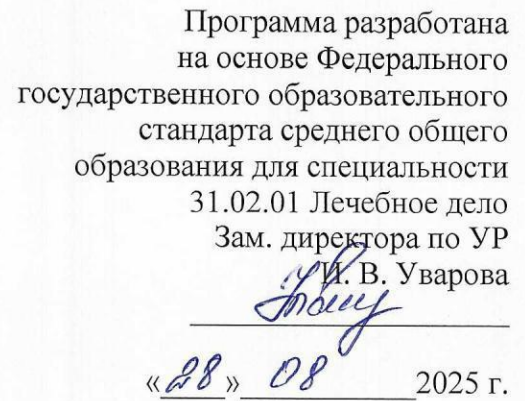 Программа разработана
на основе Федерального
государственного образовательного
стандарта среднего общего
образования для специальности
31.02.01 Лечебное дело
Зам. директора по УР
И. В. Уварова
«28» 08 2025 г.